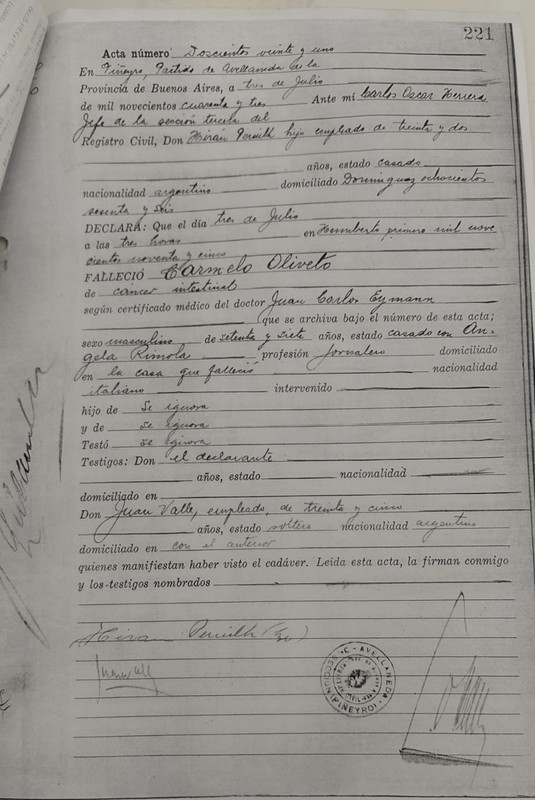 221
Acta número Doscientos veinte y uno
En Piñeyro, Partido de Avellaneda de la
Provincia de Buenos Aires, a tres de Julio
de mil novecientos cuarenta y tres Ante mí Carlos Oscar Herrera
Jefe de la sección tercera del
Registro Civil, Don Hirán Pervilh hijo empleado de treinta y dos
años, estado casado
nacionalidad argentino domiciliado Dominguez ochocientos
sesenta y seis
DECLARA: Que el día tres de Julio
a las tres horas en Humberto primero mil nove
cientos noventa y cinco
FALLECIÓ Carmelo Oliveto
de cáncer intestinal
según certificado médico del doctor Juan Carlos Eymann
que se archiva bajo el número de esta acta;
sexo masculino de setenta y siete años, estado casado con An-
gela Rimola profesión Jornalero domiciliado
en la casa que falleció nacionalidad
italiano intervenido
hijo de Se ignora
y de se ignora
Testó se ignora
Testigos: Don el declarante
años, estado nacionalidad
domiciliado en
Don Juan Valle, empleado, de treinta y cinco
años, estado soltero nacionalidad argentino
domiciliado en con el anterior
quienes manifiestan haber visto el cadáver. Leida esta acta, la firman conmigo
y los testigos nombrados
Hiran Pervilh
AVELLANEDA
(PIÑEYRO)